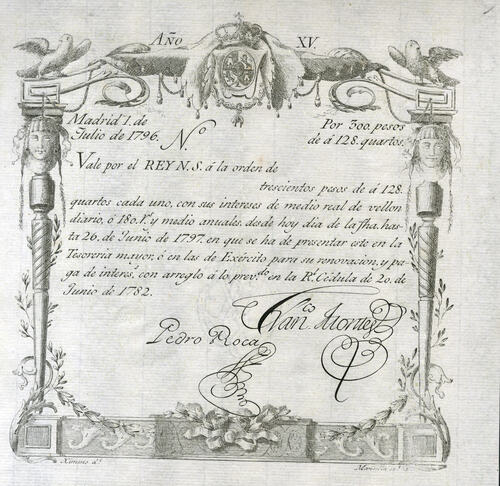 Año XV.
Madrid 1. de Julio de 1796. N.º
Por 300. pesos de á 128. quartos.
Vale por el REY N.S. á la orden de
trescientos pesos de á 128.
quartos cada uno, con sus intereses de medio real de vellon
diario, ó 180. r.s y medio anuales, desde hoy dia de la fha. has-
ta 26. de Junio de 1797. en que se ha de presentar este en la
Tesorería mayor, ó en las de Exército para su renovacion, y pa-
ga de interes, con arreglo á lo prev.do en la R.l Cédula de 20. de
Junio de 1782.
Fran.co Montes
Pedro Roca